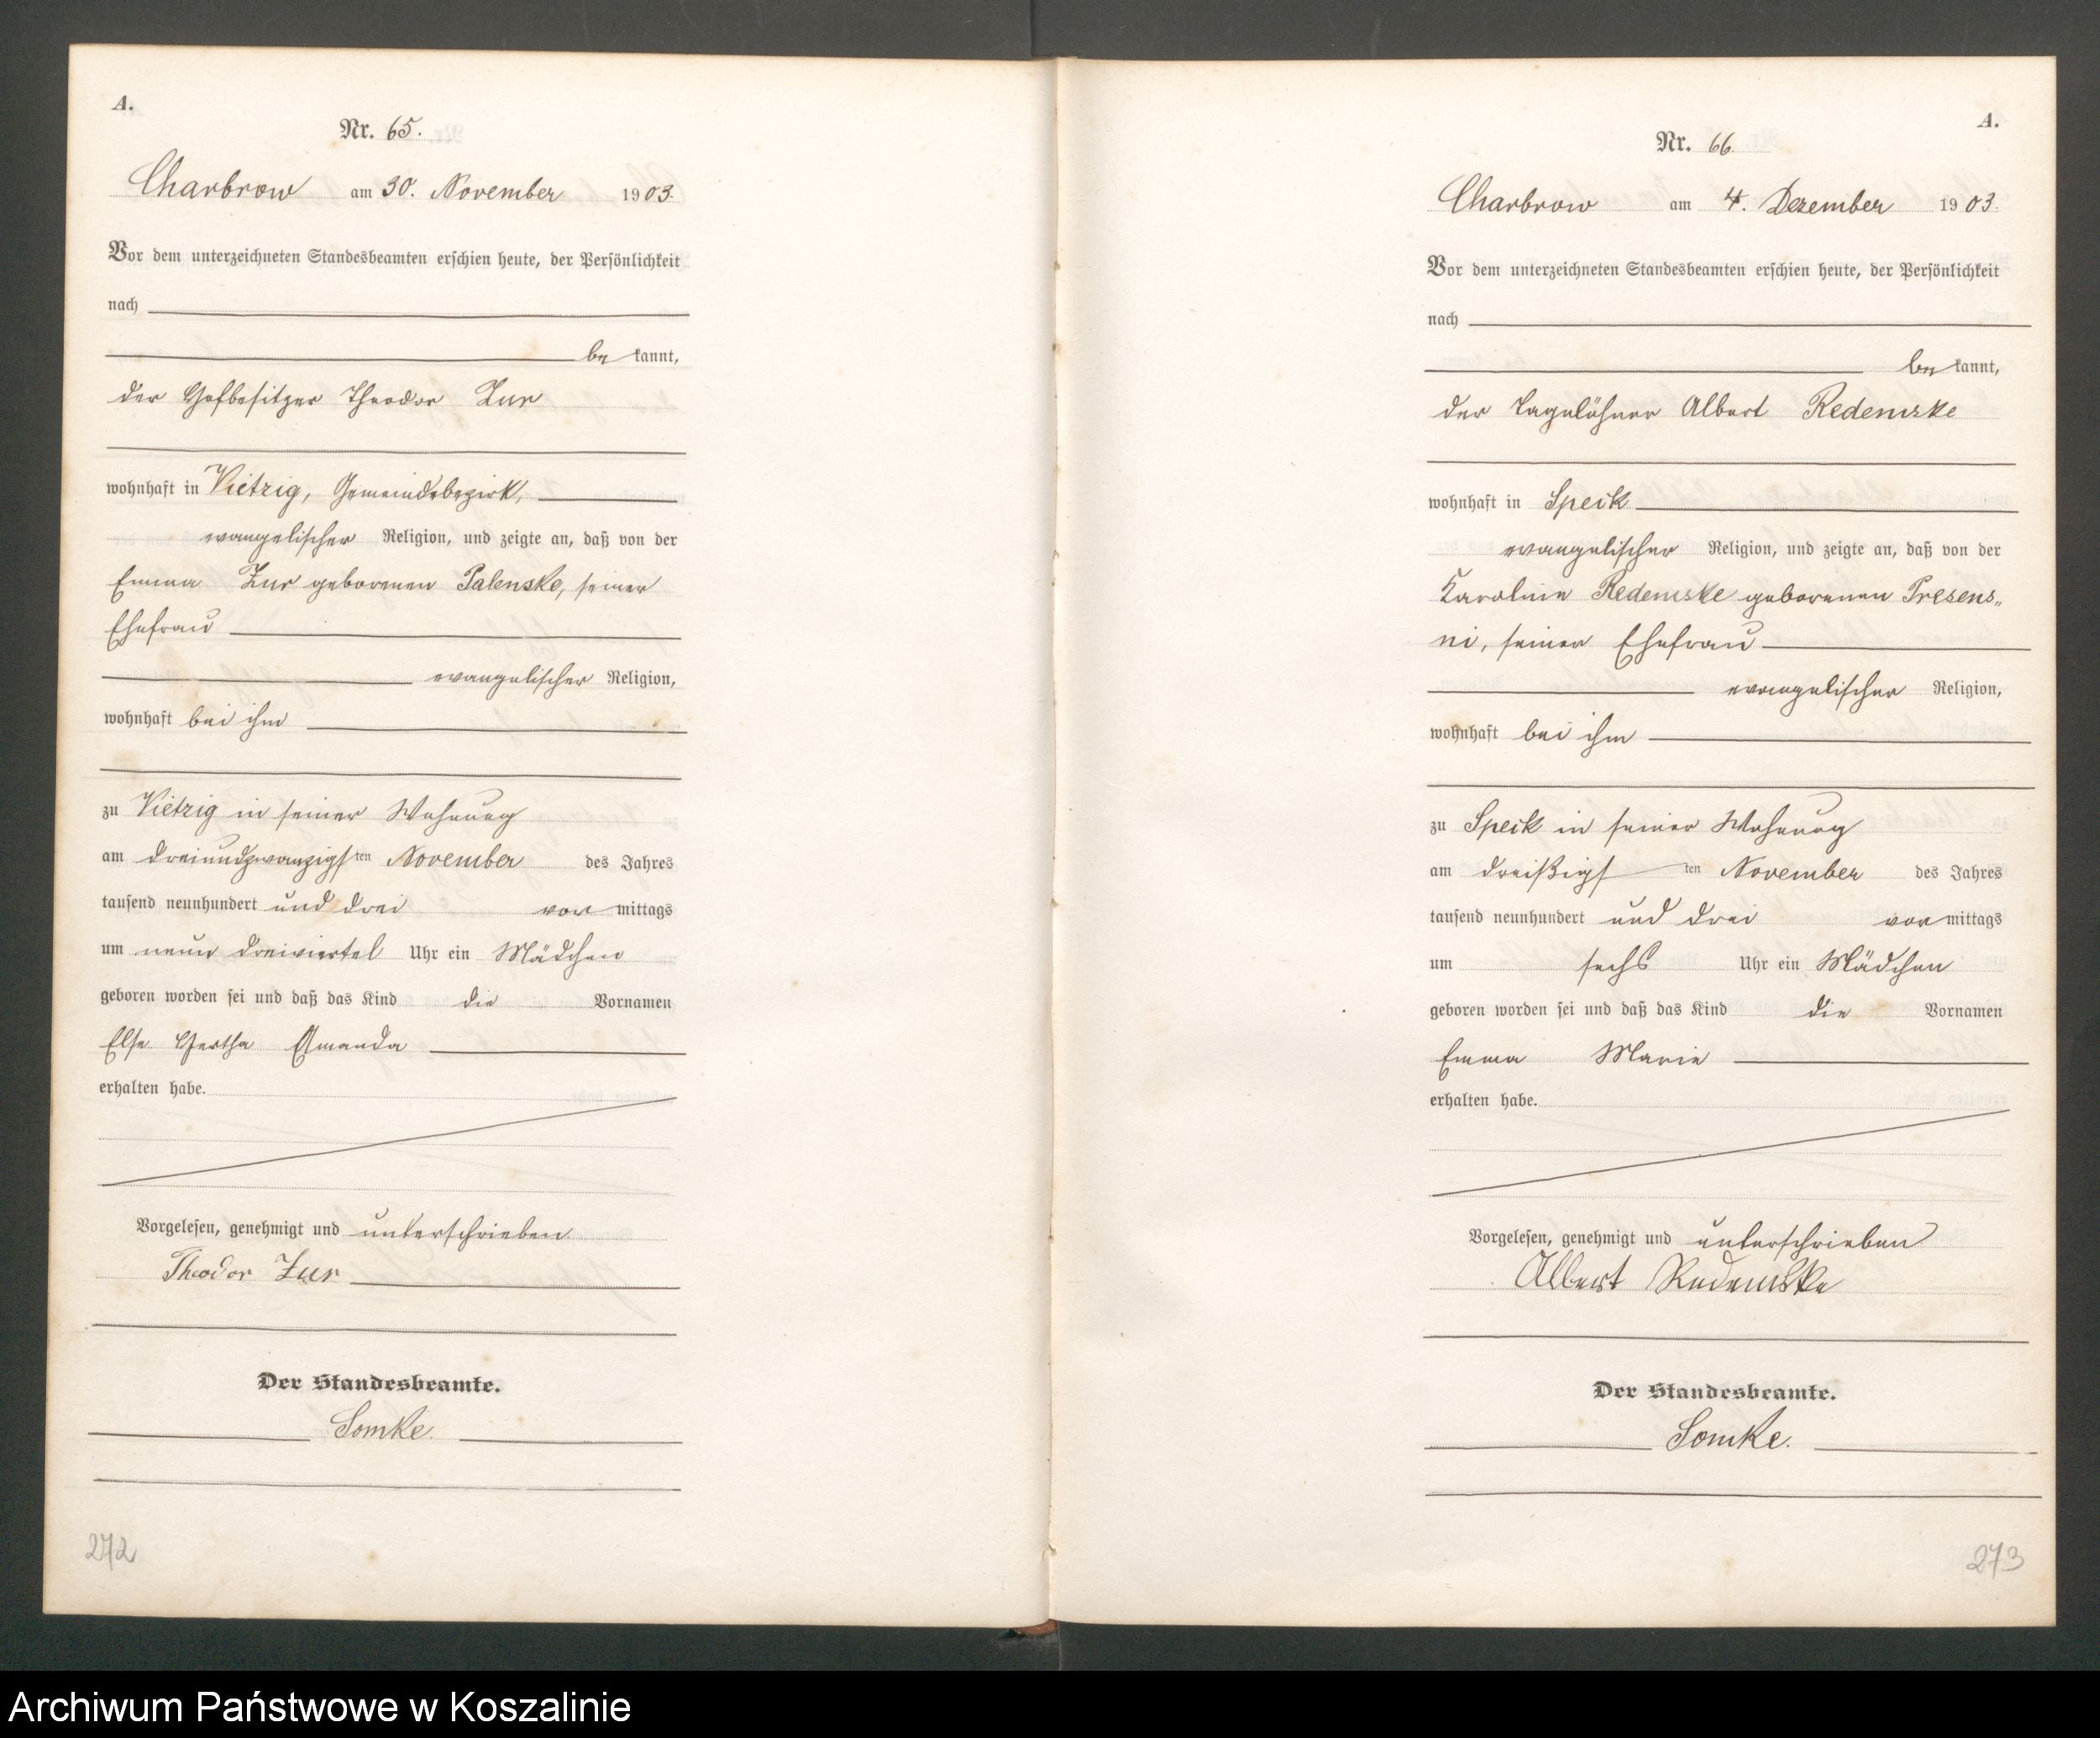 A.
Nr. 65.
Charbrow am 30. November 1903.
Vor dem unterzeichneten Standesbeamten erschien heute, der Persönlichkeit
nach
be kannt,
der Hofbesitzer Theodor Zur
wohnhaft in Vietzig, Gemeindebezirk,
evangelischer Religion, und zeigte an, daß von der
Emma Zur geborenen Palenske, seiner
Ehefrau
evangelischer Religion,
wohnhaft bei ihm
zu Vietzig in seiner Wohnung
am dreiundzwanzigsten November des Jahres
tausend neunhundert und drei vor mittags
um neun dreiviertel Uhr ein Mädchen
geboren worden sei und daß das Kind die Vornamen
Else Hertha Amanda
erhalten habe.
Vorgelesen, genehmigt und unterschrieben
Theodor Zur
Der Standesbeamte.
Somke.
272
A.
Nr. 66.
Charbrow am 4. Dezember 1903.
Vor dem unterzeichneten Standesbeamten erschien heute, der Persönlichkeit
nach
be kannt,
der Tagelöhner Albert Redemske
wohnhaft in Speck
evangelischer Religion, und zeigte an, daß von der
Karoline Redemske geborenen Presens„
ni, seiner Ehefrau
evangelischer Religion,
wohnhaft bei ihm
zu Speck in seiner Wohnung
am dreißigsten November des Jahres
tausend neunhundert und drei vor mittags
um sechs Uhr ein Mädchen
geboren worden sei und daß das Kind die Vornamen
Emma Marie
erhalten habe.
Vorgelesen, genehmigt und unterschrieben
Albert Redemske
Der Standesbeamte.
Somke.
273
Archiwum Państwowe w Koszalinie